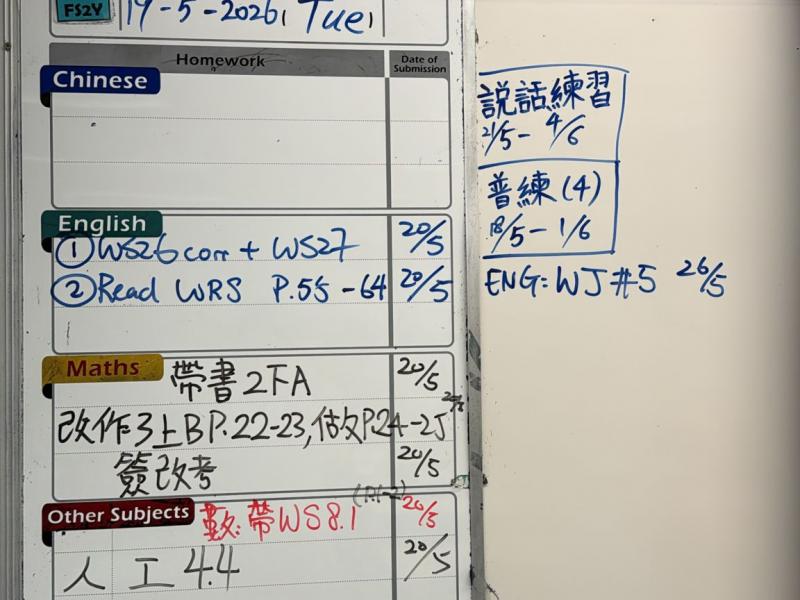 FS2Y
19-5-2026, Tue,
Homework
Date of Submission
Chinese
English
① WS26 corr + WS27 20/5
② Read WRS P.55-64 20/5
Maths
帶書2下A 20/5
改作3上B P.22-23, P.24-25
簽改考 20/5
Other Subjects
數:帶WS8.1 20/5
人工4.4 20/5
說話練習
21/5 - 4/6
普練(4)
18/5 - 1/6
ENG: WJ #5 26/5